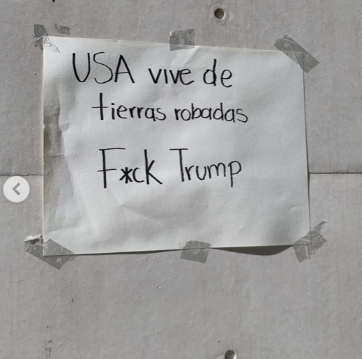 USA vive de
tierras robadas
F*ck Trump